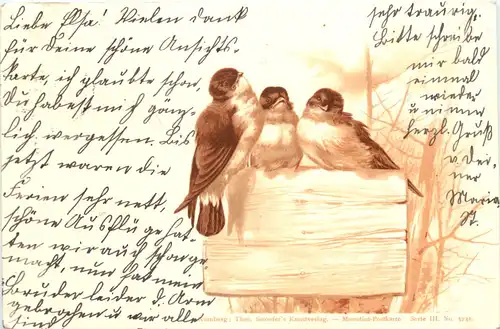 Liebe Elsa! Vielen dank
für Deine schöne Ansichts-
karte, ich glaubte schon
Du habest mich gänz-
lich vergessen. Bis
jetzt waren die
Ferien sehr nett,
schöne Ausflüge hat-
ten wir auch schon ge
macht, nun hat mein
Bruder leider d. Arm
gebrochen u wir alle
sehr traurig.
Bitte schreibe
mir bald
einmal
wieder
u nimm
herzl. Gruß
v. Dei-
ner
Maria
St.
Theo. Stroefer's Kunstverlag. — Monochat-Postkarte Serie III. No.